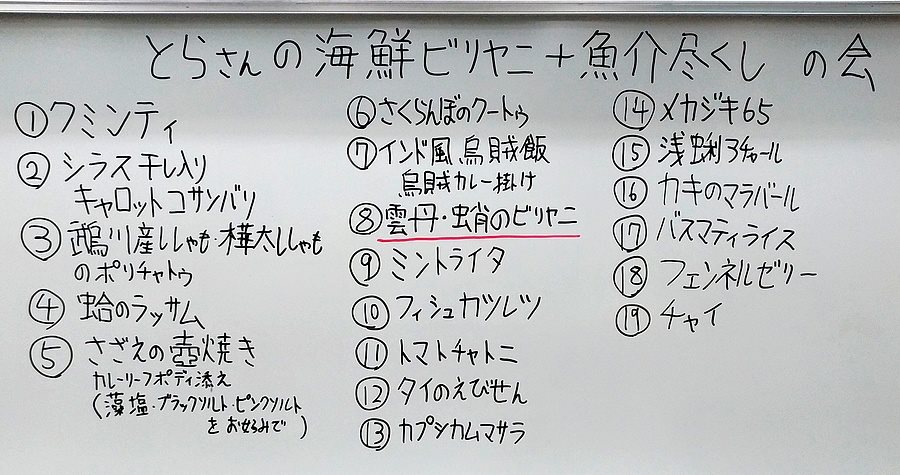 とらさんの海鮮ビリヤニ+魚介尽くしの会
①クミンティ
②シラス干し入り
キャロットコサンバリ
③鵡川産ししゃも・樺太ししゃも
のポリチャトゥ
④蛤のラッサム
⑤さざえの壺焼き
カレーリーフポディ添え
(藻塩・ブラックソルト・ピンクソルト
をお好みで)
⑥さくらんぼのクートゥ
⑦インド風烏賊飯
烏賊カレー掛け
⑧雲丹・蛸のビリヤニ
⑨ミントライタ
⑩フィシュカツレツ
⑪トマトチャトニ
⑫タイのえびせん
⑬カプシカムマサラ
⑭メカジキ65
⑮浅蜊チャール
⑯カキのマラバール
⑰バスマティライス
⑱フェンネルゼリー
⑲チャイ